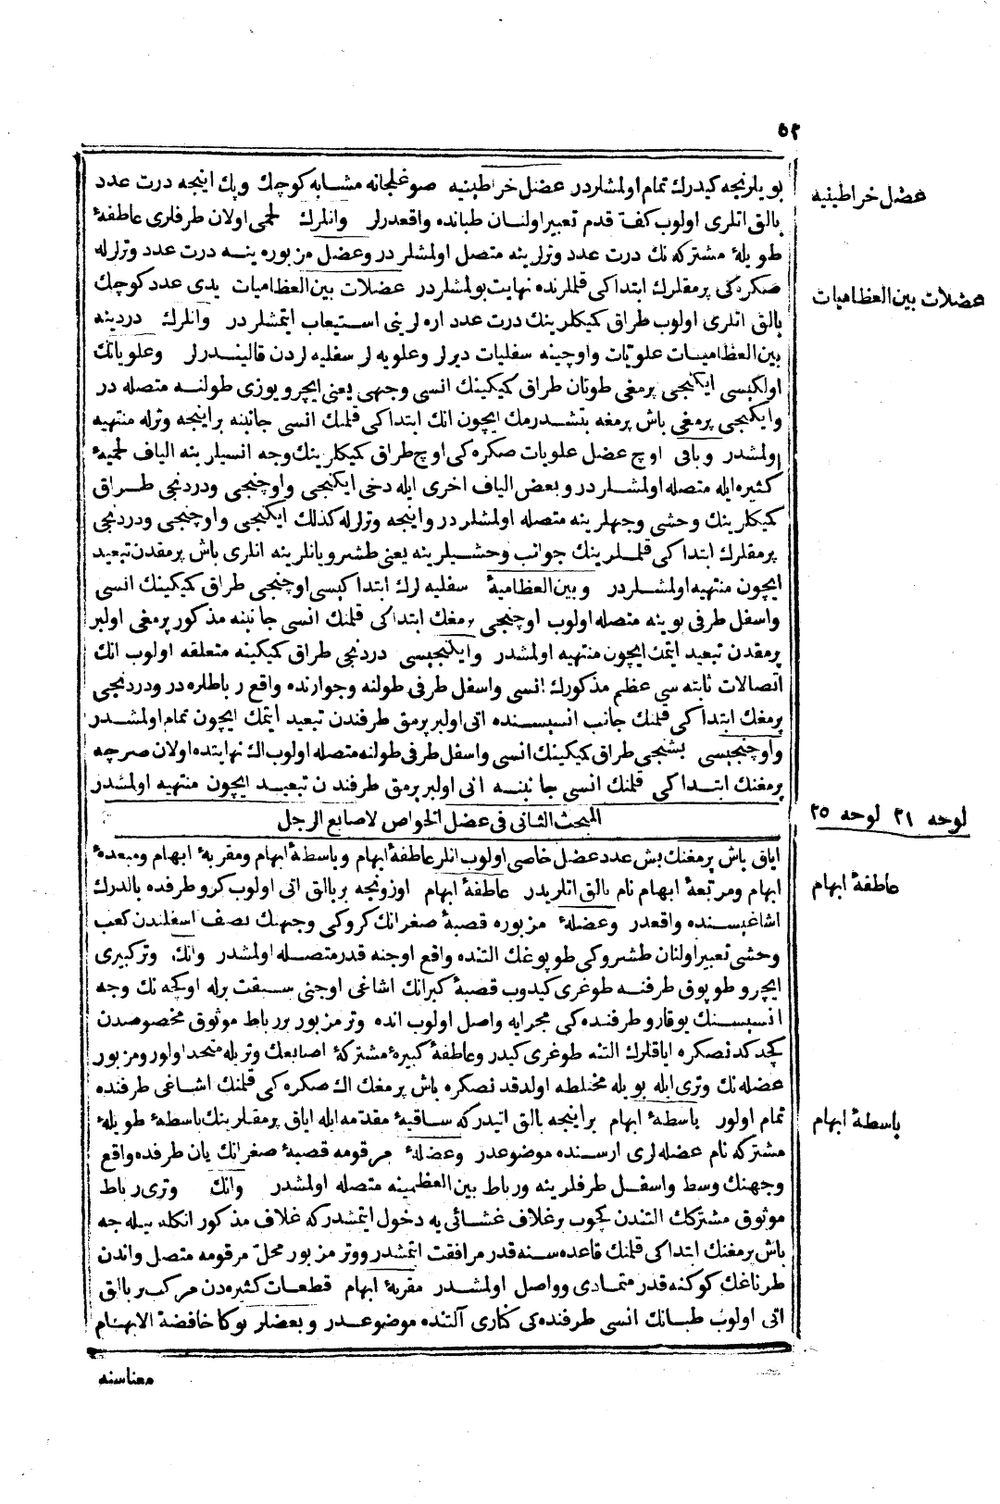 ٥٢
بويلرنجه كيدرك تمام اولمشلردر عضل خراطينيه صوغلجانه مشابه كوچك وپك اينجه درت عدد
عضل خراطينيه
بالق اتلرى اولوب كف قدم تعبير اولنان طبانده واقعدرلر وانلرك لحمى اولان طرفلرى عاطفهٔ
طويلهٔ مشتركه نك درت عدد وترلرينه متصل اولمشلردر وعضل مزبوره ينه درت عدد وترلرله
صكره كى پرمقلرك ابتداكى قلملرنده نهايت بولمشلردر عضلات بين العظاميات يدى عدد كوچك
عضلات بين العظاميات
بالق اتلرى اولوب طراق كميكلرينك درت عدد اره لرينى استيعاب ايتمشلردر وانلرك دردينه
بين العظاميات علويات واوچينه سفليات ديرلر وعلويه لر سفليه لردن قالينديرلر وعلوياتك
اولكيسى ايكنجى پرمغى طوتان طراق كميكينك انسى وجهى يعنى ايچرويوزى طولنه متصله در
وايكنجى پرمغى باش پرمغه يتشدرمك ايچون انك ابتداكى قلمك انسى جانبنه براينجه وترله منتهيه
اولمشدر وباقى اوچ عضل علويات صكره كى اوچ طراق كميكلرينك وجه انسيلرينه الياف لحميهٔ
كثيره ايله متصله اولمشلردر وبعض الياف اخرى ايله دخى ايكنجى واوچنجى ودردنجى طراق
كميكلرينك وحشى وجهلرينه متصله اولمشلردر واينجه وترلرله كذلك ايكنجى واوچنجى ودردنجى
پرمقلرك ابتداكى قلملرينك جوانب وحشيلرينه يعنى طشرو يانلرينه انلرى باش پرمقدن تبعيد
ايچون منتهيه اولمشلردر وبين العظاميهٔ سفليه لرك ابتداكيسى اوچنجى طراق كميكينك انسى
واسفل طرفى بوينه متصله اولوب اوچنجى پرمغك ابتداكى قلمنك انسى جانبنه مذكور پرمغى اولبر
پرمقدن تبعيد ايتمك ايچون منتهيه اولمشدر وايكنجيسى دردنجى طراق كميكينه متعلقه اولوب انك
اتصالات ثابته سى عظم مذكورك انسى واسفل طرفى طولنه وجوارنده واقع رباطلره در ودردنجى
پرمغك ابتداكى قلمنك جانب انسيسنده انى اولبر پرمق طرفندن تبعيد ايتمك ايچون تمام اولمشدر
واوچنجيسى بشنجى طراق كميكينك انسى واسفل طرفى طولنه متصله اولوب اك نهايتده اولان صرچه
پرمغنك ابتداكى قلمنك انسى جانبنه انى اولبر پرمق طرفندن تبعيد ايچون منتهيه اولمشدر
المبحث الثانى فى عضل الخواص لاصابع الرجل
لوحه ٢١ لوحه ٢٥
اياق باش پرمغنك بش عدد عضل خاصى اولوب انلر عاطفهٔ ابهام وباسطهٔ ابهام ومقربهٔ ابهام ومبعدهٔ
ابهام ومرتبعهٔ ابهام نام بالق اتلريدر عاطفهٔ ابهام اوزونجه بربالق اتى اولوب كرو طرفده بالدرك
عاطفهٔ ابهام
اشاغيسنده واقعدر وعضلهٔ مزبوره قصبهٔ صغرانك كروكى وجهنك نصف اسفلندن كعب
وحشى تعبير اولنان طشروكى طوپوغك التنده واقع اوجنه قدر متصله اولمشدر وانك وتركبيرى
ايچرو طوپوق طرفنه طوغرى كيدوب قصبهٔ كبرانك اشاغى اوجنى سبقت برله اوكچه نك وجه
انسيسنك يوقارو طرفنده كى مجرايه واصل اولوب انده وتر مزبور بر رباط موثوق مخصوصدن
كچدكدنصكره اياقلرك التنه طوغرى كيدر وعاطفهٔ كبيرهٔ مشتركهٔ اصابعك وتريله متحد اولور ومزبور
عضله نك وترى ايله بويله مختلطه اولدقدنصكره باش پرمغك اك صكره كى قلمنك اشاغى طرفنده
تمام اولور باسطهٔ ابهام براينجه بالق اتيدركه ساقيهٔ مقدمه ايله اياق پرمقلرينك باسطهٔ طويلهٔ
باسطهٔ ابهام
مشتركه نام عضله لرى ارسنده موضوعدر وعضلهٔ مرقومه قصبهٔ صغرانك يان طرفده واقع
وجهنك وسط واسفل طرفلرينه ورباط بين العظمينه متصله اولمشدر وانك وترى رباط
موثوق مشتركك التندن كچوب برغلاف غشائى يه دخول ايتمشدركه غلاف مذكور انكله بيله جه
باش پرمغنك ابتداكى قلمنك قاعده سنه قدر مرافقت ايتمشدر ووتر مزبور محل مرقومه متصل واندن
طرناغك كوكنه قدر متمادى وواصل اولمشدر مقربهٔ ابهام قطعات كثيره دن مركب بربالق
اتى اولوب طبانك انسى طرفنده كى كنارى آلتنده موضوعدر وبعضلر بوكا خافضة الابهام
معناسنه